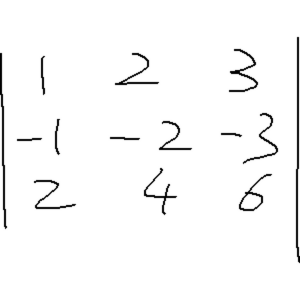 | 1 2 3 |
| -1 -2 -3 |
| 2 4 6 |